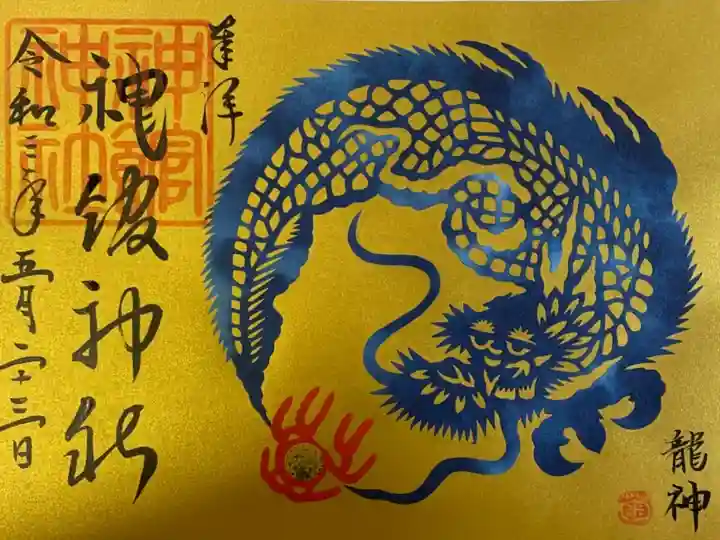 龍神
奉拝
神館神社
令和三年五月二十三日
神館
神社